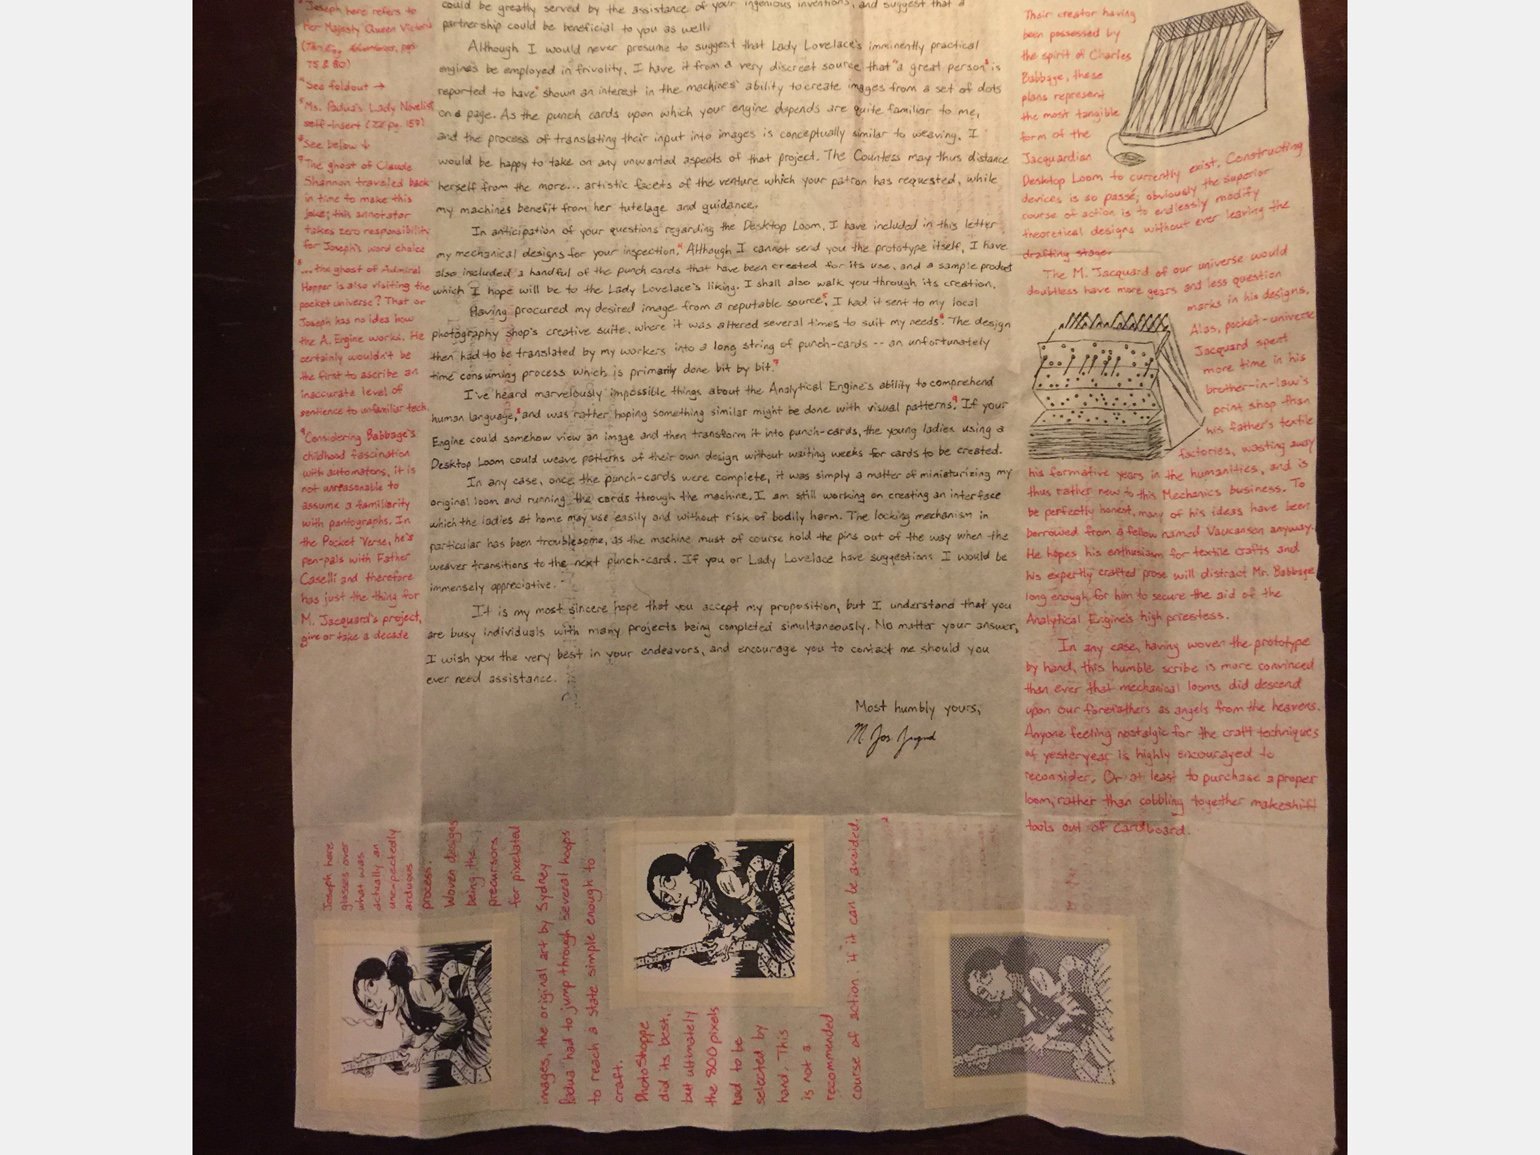 Joseph here refers to
Her Majesty Queen Victoria
75 & 80)
See foldout →
Ms. Padua's Lady Novelist
self-insert (pg. 159)
See below ↓
The ghost of Claude
Shannon traveled back
in time to make this
joke; this annotator
takes zero responsibility
for Joseph's word choice
...the ghost of Admiral
Hopper is also visiting the
pocket universe? That or
Joseph has no idea how
the A. Engine works. He
certainly wouldn't be
the first to ascribe an
inaccurate level of
sentience to unfamiliar tech.
Considering Babbage's
childhood fascination
with automatons, it is
not unreasonable to
assume a familiarity
with pantographs. In
the Pocket Verse, he's
pen-pals with Father
Caselli and therefore
has just the thing for
M. Jacquard's project,
give or take a decade
could be greatly served by the assistance of your ingenious inventions, and suggest that a
partnership could be beneficial to you as well.
Although I would never presume to suggest that Lady Lovelace's imminently practical
engines be employed in frivolity, I have it from a very discreet source that "a great person"³ is
reported to have shown an interest in the machines' ability to create images from a set of dots
on a page. As the punch cards upon which your engine depends are quite familiar to me,
and the process of translating their input into images is conceptually similar to weaving, I
would be happy to take on any unwanted aspects of that project. The Countess may thus distance
herself from the more... artistic facets of the venture which your patron has requested, while
my machines benefit from her tutelage and guidance.
In anticipation of your questions regarding the Desktop Loom, I have included in this letter
my mechanical designs for your inspection.⁴ Although I cannot send you the prototype itself, I have
also included a handful of the punch cards that have been created for its use, and a sample product
which I hope will be to the Lady Lovelace's liking. I shall also walk you through its creation.
Having procured my desired image from a reputable source⁵, I had it sent to my local
photography shop's creative suite, where it was altered several times to suit my needs⁶. The design
then had to be translated by my workers into a long string of punch-cards -- an unfortunately
time consuming process which is primarily done bit by bit.⁷
I've heard marvelously impossible things about the Analytical Engine's ability to comprehend
human language,⁸ and was rather hoping something similar might be done with visual patterns.⁹ If your
Engine could somehow view an image and then transform it into punch-cards, the young ladies using a
Desktop Loom could weave patterns of their own design without waiting weeks for cards to be created.
In any case, once the punch-cards were complete, it was simply a matter of miniaturizing my
original loom and running the cards through the machine. I am still working on creating an interface
which the ladies at home may use easily and without risk of bodily harm. The locking mechanism in
particular has been troublesome, as the machine must of course hold the pins out of the way when the
weaver transitions to the next punch-card. If you or Lady Lovelace have suggestions I would be
immensely appreciative.
It is my most sincere hope that you accept my proposition, but I understand that you
are busy individuals with many projects being completed simultaneously. No matter your answer,
I wish you the very best in your endeavors, and encourage you to contact me should you
ever need assistance.
Most humbly yours,
M Jos Jacquard
Their creator having
been possessed by
the spirit of Charles
Babbage, these
plans represent
the most tangible
form of the
Jacquardian
Desktop Loom to currently exist. Constructing
devices is so passé; obviously the superior
course of action is to endlessly modify
theoretical designs without ever leaving the
drafting stage.
The M. Jacquard of our universe would
doubtless have more gears and less question
marks in his designs.
Alas, pocket-universe
Jacquard spent
more time in his
brother-in-law's
print shop than
his father's textile
factories, wasting away
his formative years in the humanities, and is
thus rather new to this Mechanics business. To
be perfectly honest, many of his ideas have been
borrowed from a fellow named Vaucanson anyway.
He hopes his enthusiasm for textile crafts and
his expertly crafted prose will distract Mr. Babbage
long enough for him to secure the aid of the
Analytical Engine's high priestess.
In any case, having woven the prototype
by hand, this humble scribe is more convinced
than ever that mechanical looms did descend
upon our forefathers as angels from the heavens.
Anyone feeling nostalgic for the craft techniques
of yesteryear is highly encouraged to
reconsider. Or at least to purchase a proper
loom, rather than cobbling together makeshift
tools out of cardboard.
Joseph here
glosses over
what was
actually an
unexpectedly
arduous
process.
Woven designs
being the
precursors
for pixelated
images, the original art by Sydney
Padua had to jump through several hoops
to reach a state simple enough to
craft.
PhotoShoppe
did its best,
but ultimately
the 800 pixels
had to be
selected by
hand. This
is not a
recommended
course of action, if it can be avoided.